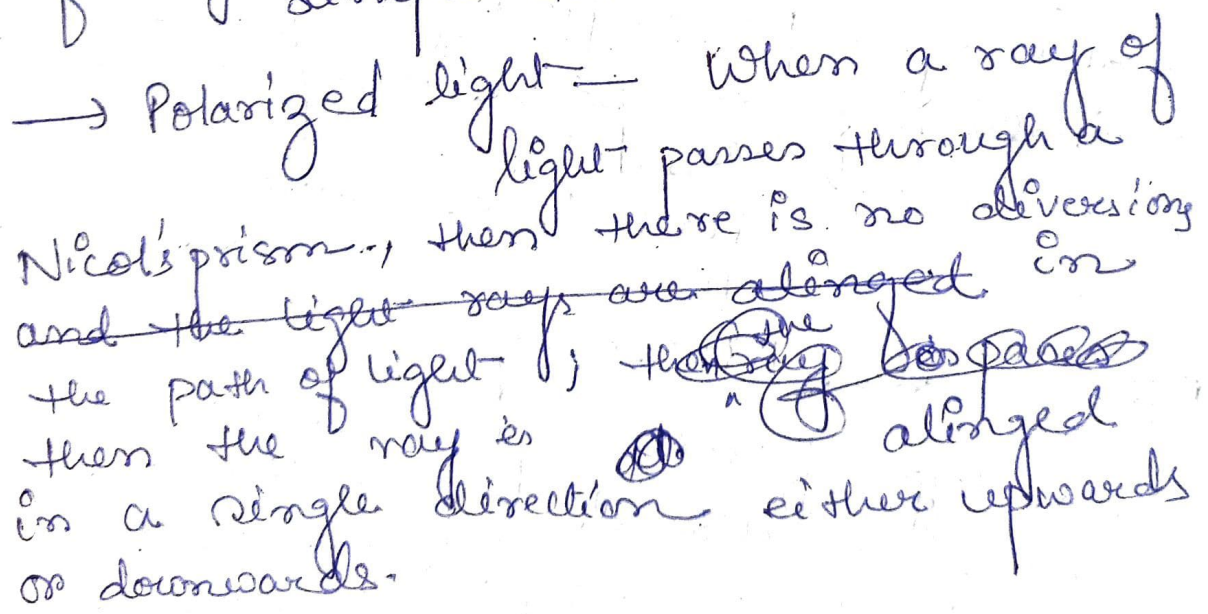 → Polarized light — When a ray of
light passes through a
Nicol's prism, then there is no diversiong
and the light rays are alinged in
the path of light; the
then the ray is alinged
in a single direction either upwards
or downwards.